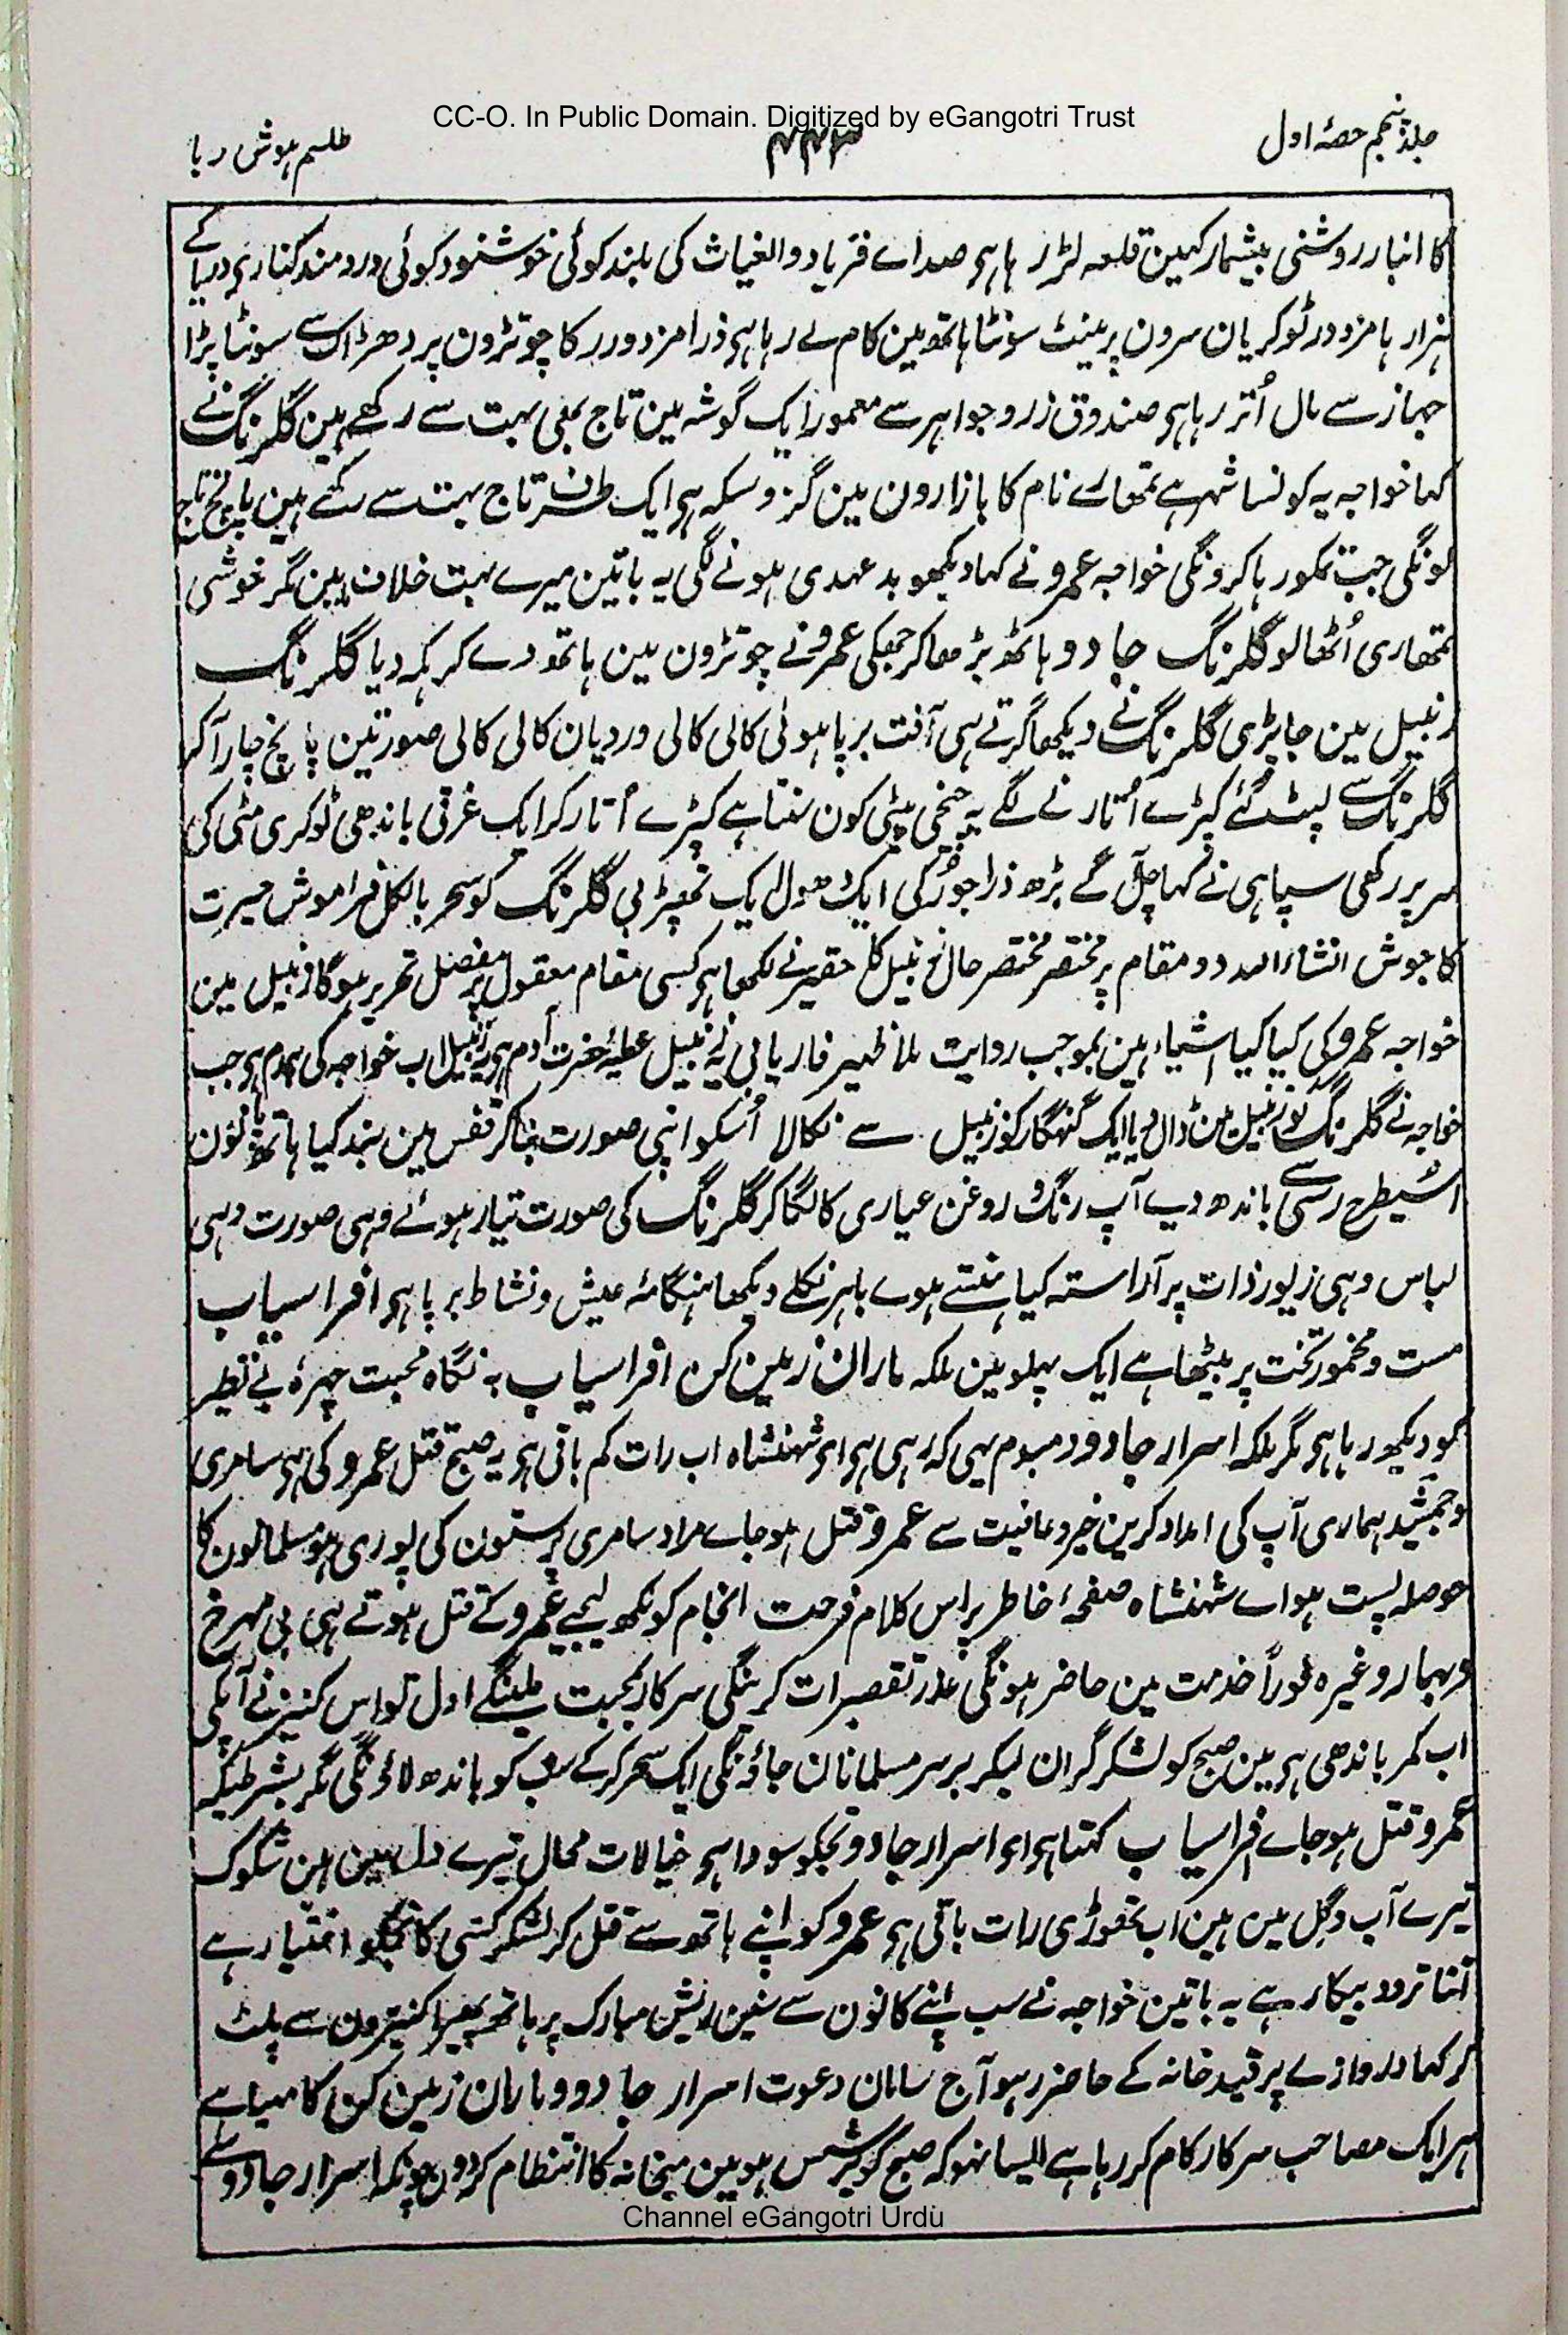 CC-O. In Public Domain. Digitized by eGangotri Trust
جلد پنجم حصۂ اول
۴۴۳
طلسم ہوش ربا
کا انبار روشنی بیشمار کہین قلعہ لڑ رہا ہی صداے فریاد والغیاث کی بلند کوئی خوشنود کوئی دردمند کنارے دریا کے
ہزار ہا مزدور ٹوکریان سرون پر مینٹ سونٹا ہاتھ مین کام لے رہا ہی ذرا مزدور رکا چوتڑون پر دھڑاک سے سونٹا پڑا
جہاز سے مال اُتر رہا ہی صندوق زر و جواہر سے معمور ایک گوشہ مین تاج بھی بہت سے رکھے ہین گلرنگ نے
کہا خواجہ یہ کونسا شہر ہے تمھارے نام کا بازارون مین گز و سکہ ہی ایک طرف تاج بہت سے رکھے ہین پانچ تاج
لونگی جب تمکو رہا کرونگی خواجہ عمرو نے کہا دیکھو بد عہدی ہونے لگی یہ باتین میرے بہت خلاف ہین مگر خوشی
تمھاری اُٹھا لو گلرنگ جادو ہاتھ بڑھا کر جھکی عمرو نے چوتڑون مین ہاتھ دے کر ڈھکیل دیا گلرنگ
زنبیل مین جا پڑی گلرنگ نے دیکھا گرتے ہی آفت برپا ہوئی کالی کالی وردیان کالی کالی صورتین پانچ چار آکر
گلرنگ سے لپٹ گئے کپڑے اُتارنے لگے یہ چیخی پیٹی کون سنتا ہے کپڑے اُتار کر ایک غرقی باندھی ٹوکری مٹی کی
سر پر رکھی سپاہی نے کہا چل آگے بڑھ ذرا جو رکی ایک دھول ایک تھپڑ بی گلرنگ کو سحر بالکل فراموش حیرت
کا جوش انشاء اللہ دو مقام پر مختصر مختصر حال زنبیل کا حقیر نے لکھا ہی کسی مقام معقول پر مفصل تحریر ہوگا زنبیل مین
خواجہ عمرو کی کیا کیا اشیاء ہین بموجب روایت ملا ظہیر فاریابی یہ زنبیل عطیۂ حضرت آدم ہی زنبیل اب خواجہ کی ہمدم ہی جب
خواجہ نے گلرنگ کو زنبیل مین ڈال دیا ایک گنہگار کو زنبیل سے نکالا اُسکو اپنی صورت بنا کر قفس مین بند کیا ہاتھ پانؤن
اسیطرح رسی سے باندھ دیے آپ رنگ و روغن عیاری کا لگا کر گلرنگ کی صورت تیار ہوئے وہی صورت وہی
لباس وہی زیور ذات پر آراستہ کیا ہنستے ہوے باہر نکلے دیکھا ہنگامۂ عیش و نشاط برپا ہی افراسیاب
مست و مخمور تخت پر بیٹھا ہے ایک پہلو مین ملکہ ماران زمین کن افراسیاب بہ نگاہ محبت چہرۂ بے نظیر
کو دیکھ رہا ہی مگر ملکہ اسرار جادو دمبدم یہی کہ رہی ہی اے شہنشاہ اب رات کم باقی ہی یہ صبح قتل عمرو کی ہی سامری
و جمشید ہماری آپ کی امداد کرین خیر و عافیت سے عمرو قتل ہو جاے مراد سامری پرستون کی پوری ہو مسلمانون کا
حوصلہ پست ہو اے شہنشاہ صفحۂ خاطر پر اس کلام فرحت انجام کو لکھ لیجیے عمرو کے قتل ہوتے ہی بی مہرخ
و بہار وغیرہ فوراً خدمت مین حاضر ہونگی عذر تقصیرات کرینگی سرکار بمحبت ملینگے اول تو اس کنیز نے آپکی
اب کمر باندھی ہی مین صبح کو لشکر گران لیکر بر سر مسلمانان جاؤنگی ایک سحر کر کے سب کو باندھ لاؤنگی مگر بشرطیکہ
عمرو قتل ہو جاے افراسیاب کہتا ہی اے اسرار جادو تجکو سودا ہی خیالات محال تیرے دل مین ہین شکوک
تیرے آب و گل مین ہین اب تھوڑی رات باقی ہی عمرو کو اپنے ہاتھ سے قتل کر لشکر کشی کا تجکو اختیار ہے
اتنا تردد بیکار ہے یہ باتین خواجہ نے سب اپنے کانون سے سنین ریش مبارک پر ہاتھ پھیرا کنیزون سے پلٹ
کر کہا دروازے پر قید خانہ کے حاضر رہو آج سامان دعوت اسرار جادو و ماران زمین کن کا مہیا ہے
ہر ایک مصاحب سرکار کام کر رہا ہے ایسا نہو کہ صبح کو پرسش ہو مین میخانہ کا انتظام کر دون چونکہ اسرار جادو نے
Channel eGangotri Urdu